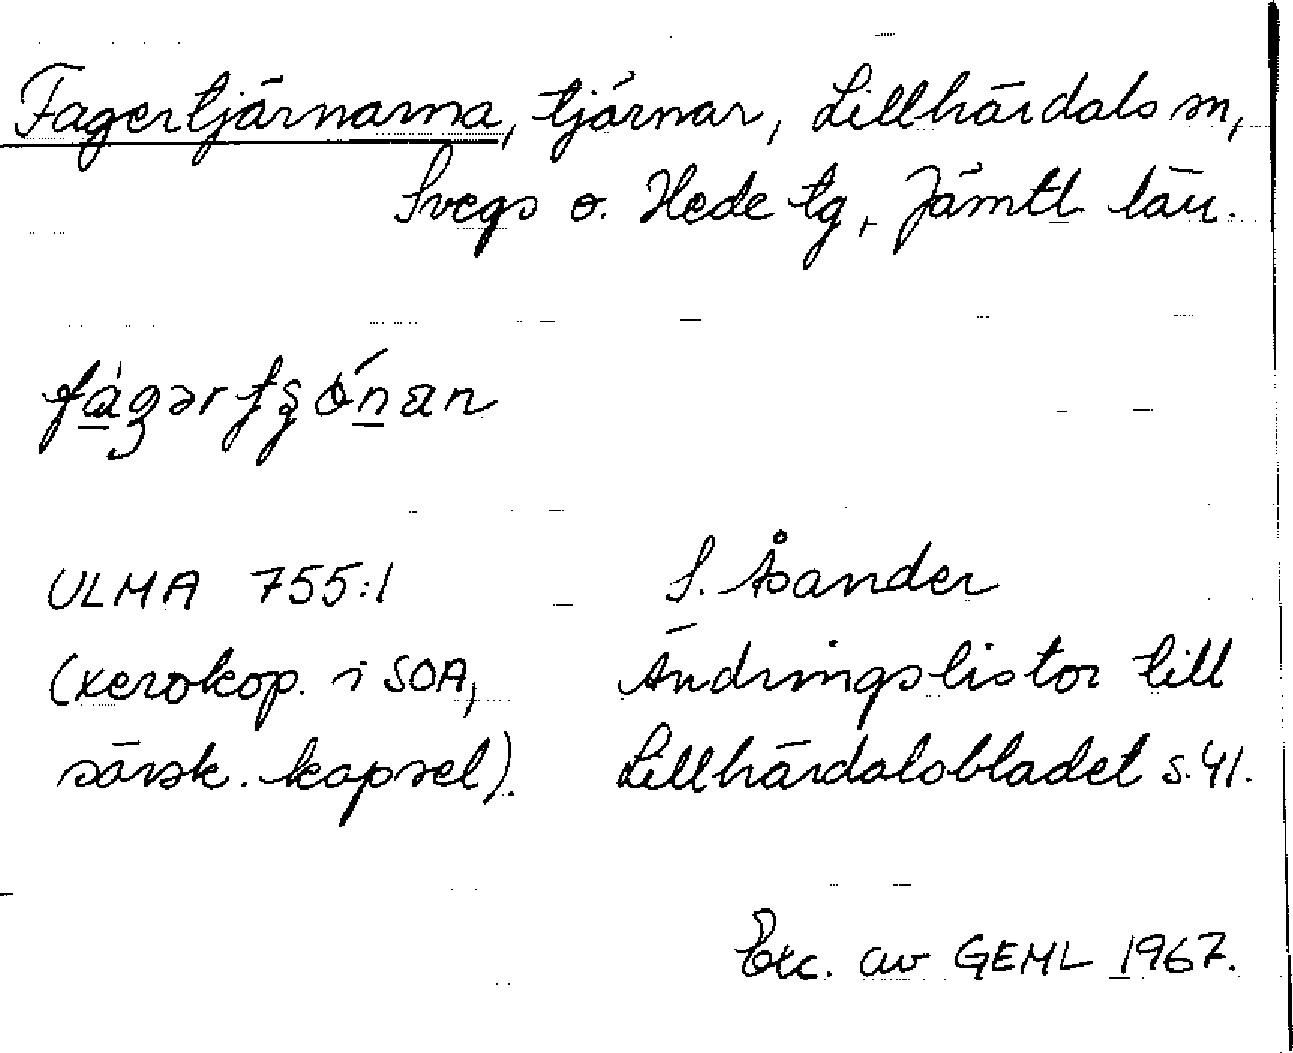 Fagertjärnarna, tjärnar, Lillhärdals sn,
Svegs o. Hede tg, Jämtl län.
ULMA 755:1
(xerokop. i SOA,
särsk. kapsel).
S. Åsander
Ändringslistor till
Lillhärdalsbladet s. 41.
Exc. av GEML 1967.